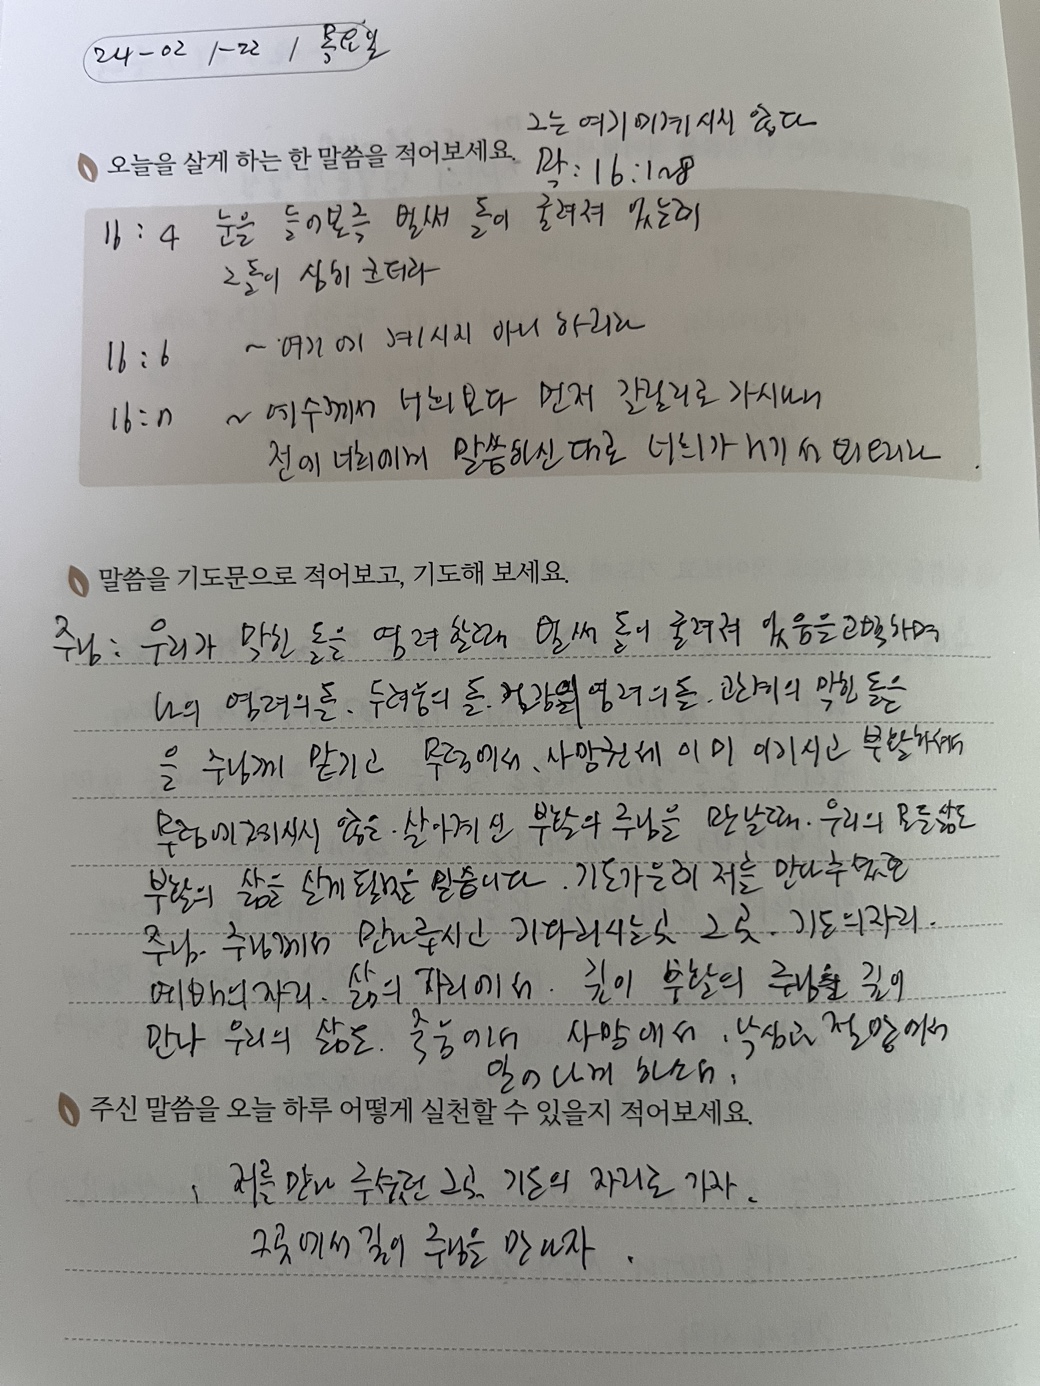 24-02 /-22 / 목요일
그는 여기 계시지 않다
오늘을 살게 하는 한 말씀을 적어보세요.
막: 16:1~8
16:4 눈을 들어본즉 벌써 돌이 굴려져 있는데
그 돌이 심히 크더라
16:6 ~ 여기 에 계시지 아니 하리라
16:7 ~ 예수께서 너희보다 먼저 갈릴리로 가시나니
전에 너희에게 말씀하신 대로 너희가 거기서 뵈리라
말씀을 기도문으로 적어보고, 기도해 보세요.
주님: 우리가 막힌 돌을 염려 할때 벌써 돌이 굴려져 있음을 고백하며
나의 염려의 돌. 두려움의 돌. 염려의 돌. 관계의 막힌 돌은
을 주님께 맡기고 무덤에서. 사망권세 이미 이기시고 부활하셔서
무덤에 계시지 않은. 살아계신 부활의 주님을 만날때. 우리의 모든 삶도
부활의 삶을 살게 될것을 믿습니다. 기도가운데 저를 만나주셨던
주님. 주님께서 만나주시고 기다리시는 곳 그 곳. 기도의 자리.
예배의 자리. 삶의 자리에서. 깊이 부활의 주님을 깊이
만나 우리의 삶도. 죽음에서 사망에서. 낙심과 절망에서
일어나게 하소서.
주신 말씀을 오늘 하루 어떻게 실천할 수 있을지 적어보세요.
저를 만나 주셨던 그곳. 기도의 자리로 가자.
그곳에서 깊이 주님을 만나자.